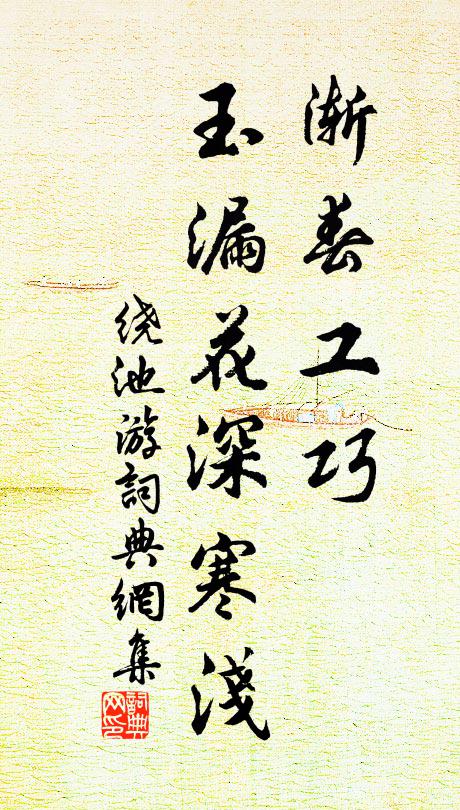 渐春工巧
玉漏花深寒淺
绕池游詞典網集
詞典
网印